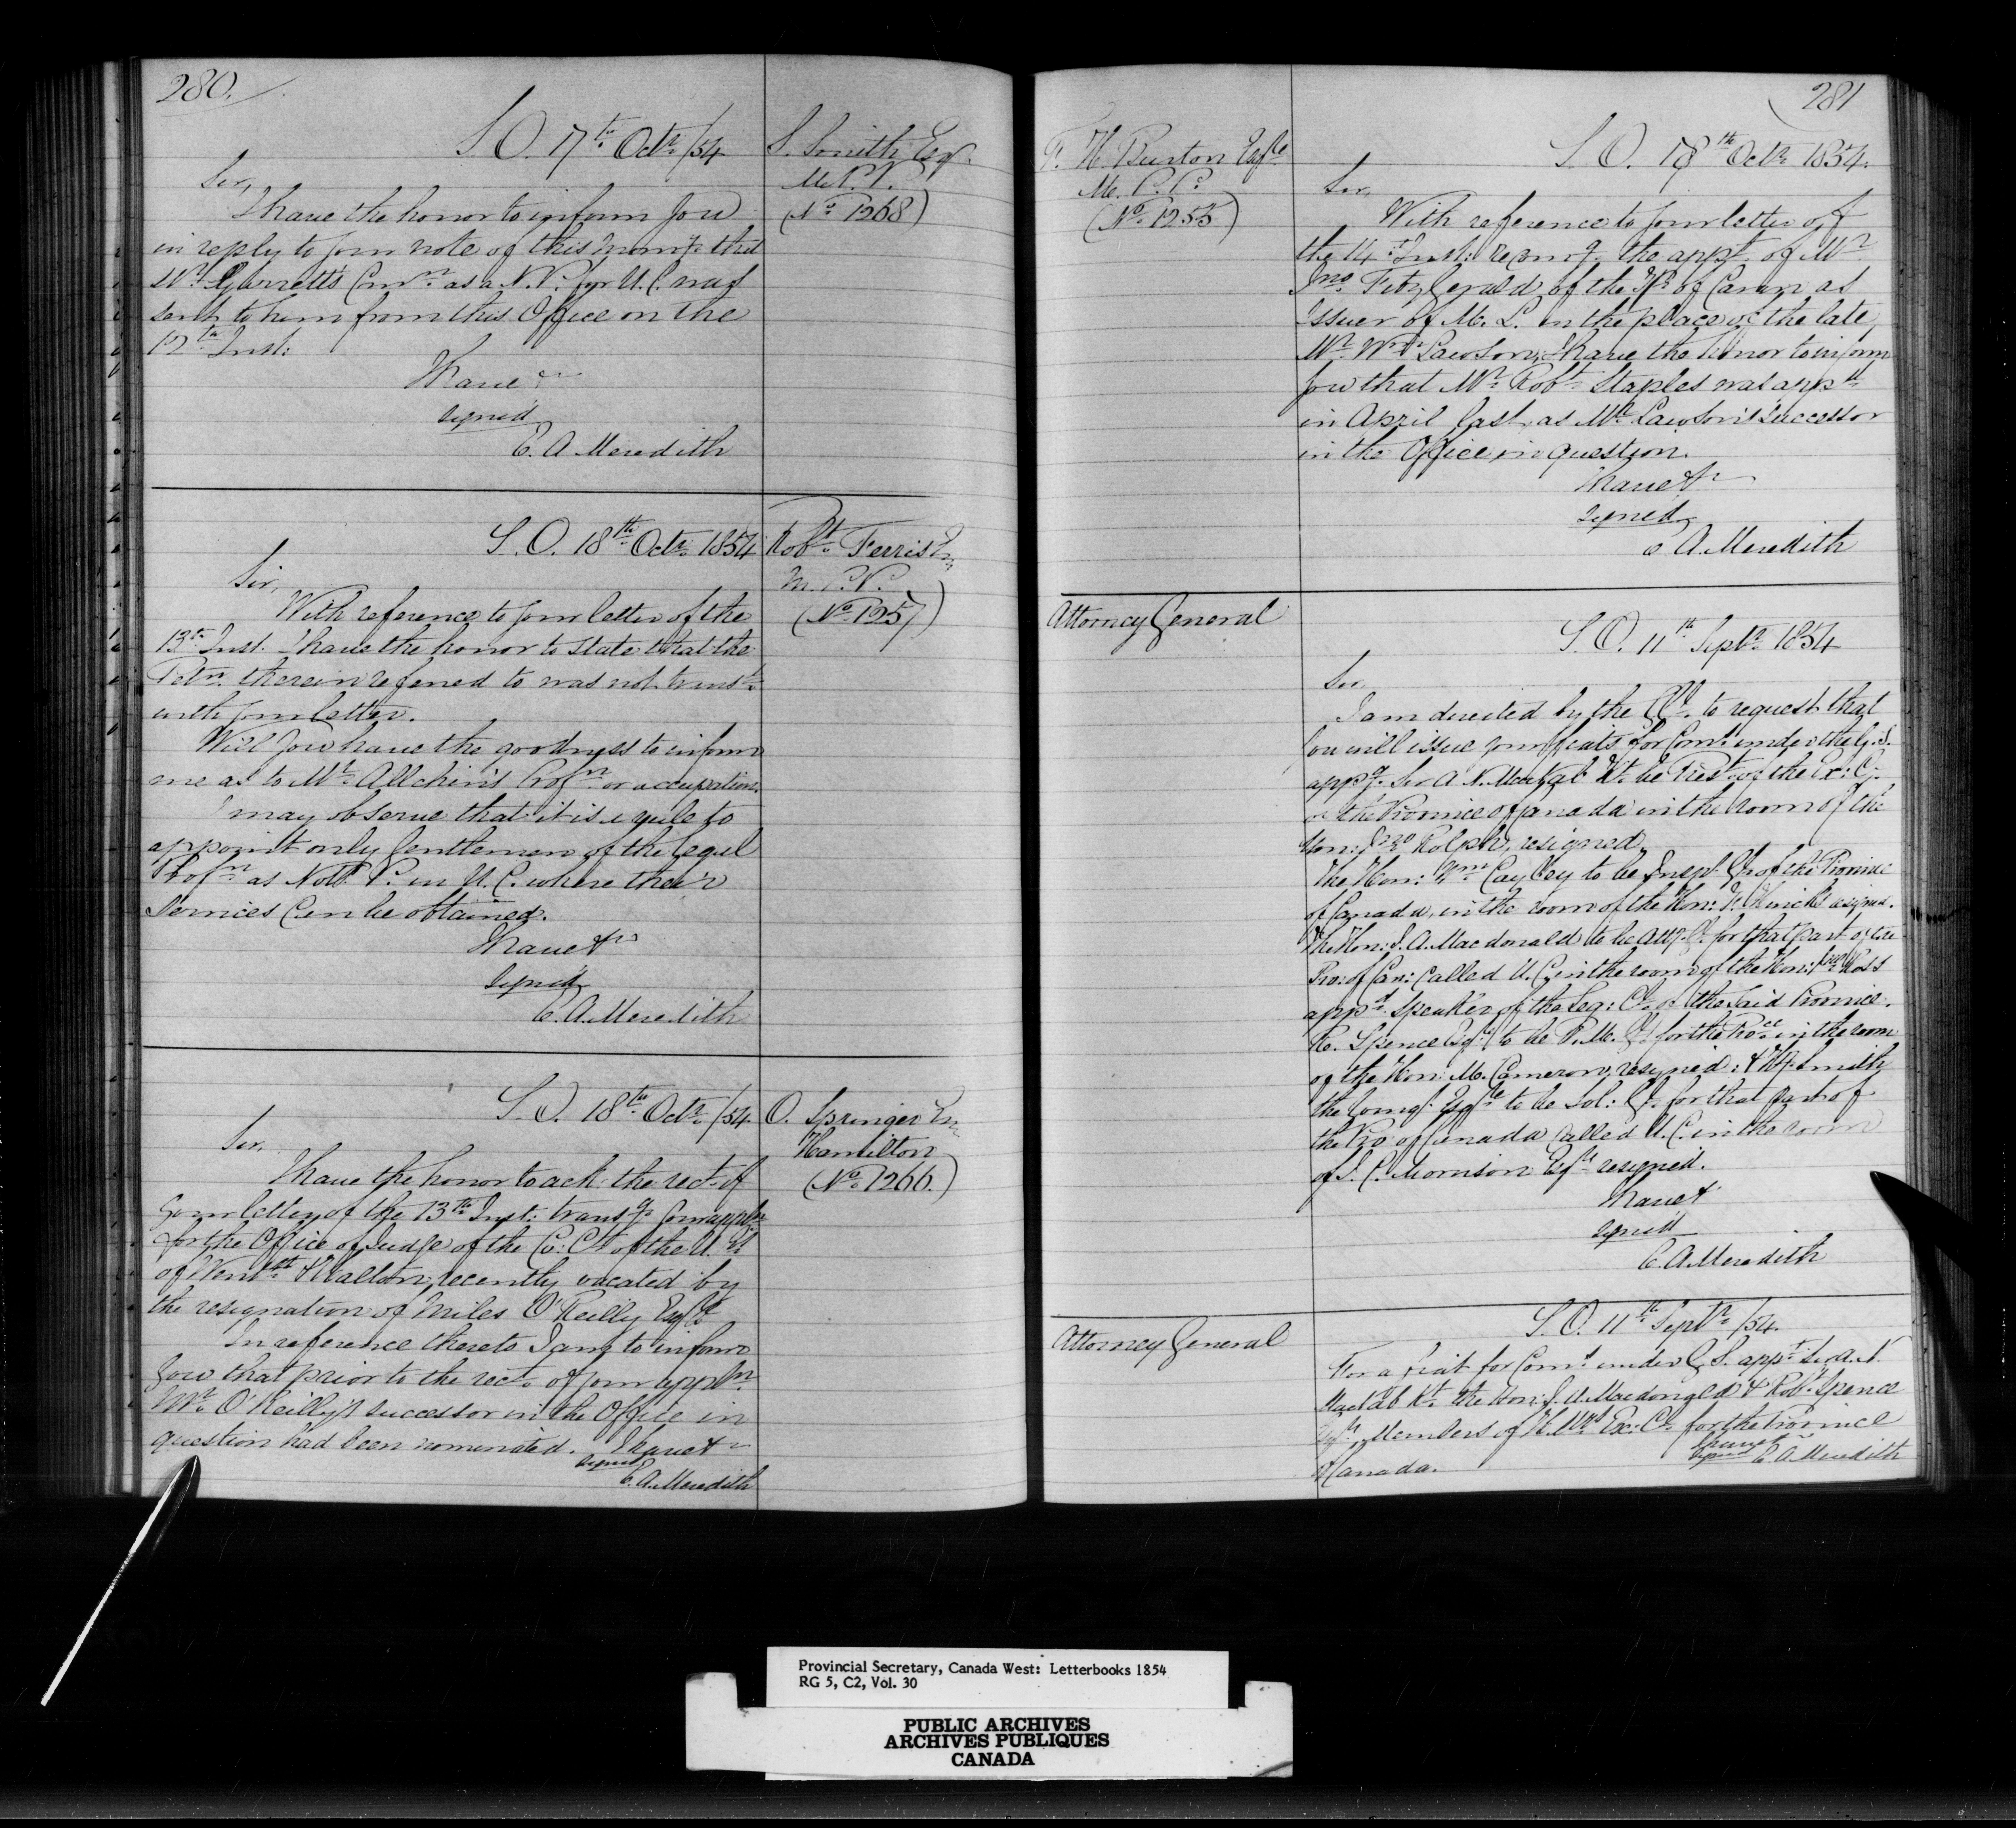 280.
S. O. 17th Octr. /54
S. Smith Esqr.
M.P.P.
(No. 1268)
Sir,
I have the honor to inform you
in reply to your note of this morng. that
Mr. Garrett's Comn. as a N. P. for U. C. was
sent to him from this Office on the
12th Inst:
I have &c
signed
E. A Meredith
S. O. 18th Octr. 1854
Robt. Ferrie Esq
M.P.P.
(No. 1257)
Sir,
With reference to your letter of the
13th Inst. I have the honor to state that the
Petn. therein referred to was not transd.
with your letter.
Will you have the goodness to inform
me as to Mr. Allchin's Profn. or occupation.
I may observe that it is a rule to
appoint only Gentlemen of the legal
Profn. as Not. P. in U. C. where their
services can be obtained.
I have &c
signed
E. A. Meredith
S. O. 18th Octr. /54
O. Springer Esq
Hamilton
(No. 1266.)
Sir,
I have the honor to ack. the rect. of
your letter of the 13th Inst: transg. your appln.
for the Office of Judge of the Co: Ct. of the U. Cs.
of Wentth. & Halton, recently vacated by
the resignation of Miles O'Reilly Esqre
In reference thereto I am to inform
you that prior to the rect. of your appln.
Mr. O'Reilly's successor in the Office in
question had been nominated. I have &c
signed
E. A. Meredith
281
F. H. Burton Esqre
M. P. P.
(No. 1255)
S. O. 18th Octr. 1854.
Sir,
With reference to your letter of
the 14th Inst: recomg. the appt. of Mr.
Jno. FitzGerald of the Tp. of Cavan as
Issuer of M. L. in the place of the late
Mr. Wm. Lawson, I have the honor to inform
you that Mr. Robt. Staples was appd.
in April last, as Mr. Lawson's successor
in the Office in question.
I have &c
signed
E A. Meredith
Attorney General
S. O. 11th Septr. 1854
Sir
I am directed by the G. G. to request that
you will issue your fiats for Comns. under the G. S.
appg. Sir A. N. MacNab Kt. to be Prest. of the Ex: C.
of the Province of Canada in the room of the
Hon: Jno. Rolph, resigned.
The Hon: Wm. Cayley to be Insp. Gl. of the Province
of Canada, in the room of the Hon: F. Hincks resigned.
The Hon: J. A. Macdonald to be Atty. Gl. for that part of the
Pro: of Can: called U. C. in the room of the Hon: Jno. Ross
appd. Speaker of the Leg: Cl. of the said Province.
R. Spence Esqre. to be P. M. Gl. for the Proce. in the room
of the Hon: M. Cameron, resigned: & Hy. Smith
the Youngr. Esqre to be Sol: Gl. for that part of
the Pro of Canada called U. C. in the room
of J. C. Morrison Esqre resigned.
I have &
signed
E. A Meredith
Attorney General
S. O. 11th Septr. /54.
For a fiat for Comn. under G. S. appg. Sir A. N.
MacNab Kt. the Hon: J. A. Macdonald & Robt. Spence
Esqre. Members of H. M's. Ex: Cl. for the Province
of Canada.
I have &
signed E A Meredith
Provincial Secretary, Canada West: Letterbooks 1854
RG 5, C2, Vol. 30
PUBLIC ARCHIVES
ARCHIVES PUBLIQUES
CANADA